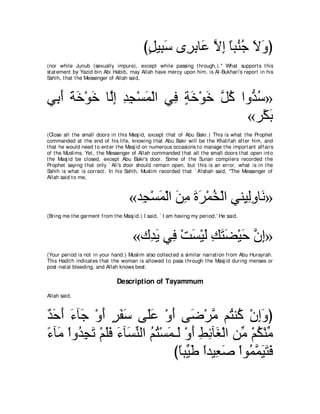 (وَلَا جُنُبًا إِلَّا عَابِرِي سَبِيلٍ)
(nor while Junub (sexually impure), except while passing through,)." What supports this
statement by Yazid bin Abi Habib, may Allah have mercy upon him, is Al-Bukhari's report in his
Sahih, that the Messenger of Allah said,
«سُدُّوا كُلَّ خَوْخَةٍ فِي الْمَسْجِدِ إِلَّا خَوْخَةَ أَبِي
بَكْرٍ»
(Close all the small doors in this Masjid, except that of Abu Bakr.) This is what the Prophet
commanded at the end of his life, knowing that Abu Bakr will be the Khalifah after him, and
that he would need to enter the Masjid on numerous occasions to manage the important affairs
of the Muslims. Yet, the Messenger of Allah commanded that all the small doors that open into
the Masjid be closed, except Abu Bakr's door. Some of the Sunan compilers recorded the
Prophet saying that only `Ali's door should remain open, but this is an error, what is in the
Sahih is what is correct. In his Sahih, Muslim recorded that `A'ishah said, "The Messenger of
Allah said to me,
«نَاوِلِينِي الْخُمْرَةَ مِنَ الْمَسْجِدِ»
(Bring me the garment from the Masjid.) I said, `I am having my period.' He said,
«إِنَّ حَيْضَتَكِ لَيْسَتْ فِي يَدِكِ»
(Your period is not in your hand.) Muslim also collected a similar narration from Abu Hurayrah.
This Hadith indicates that the woman is allowed to pass through the Masjid during menses or
post-natal bleeding, and Allah knows best.
Description of Tayammum
Allah said,
(وَإِنْ كُنتُم مَّرْضَى أَوْ عَلَى سَفَرٍ أَوْ جَآءَ أَحَدٌ
مِّنْكُمْ مِّن الْغَآئِطِ أَوْ لَـمَسْتُمُ النِّسَآءَ فَلَمْ تَجِدُواْ مَآءً
فَتَيَمَّمُواْ صَعِيداً طَيِّباً)